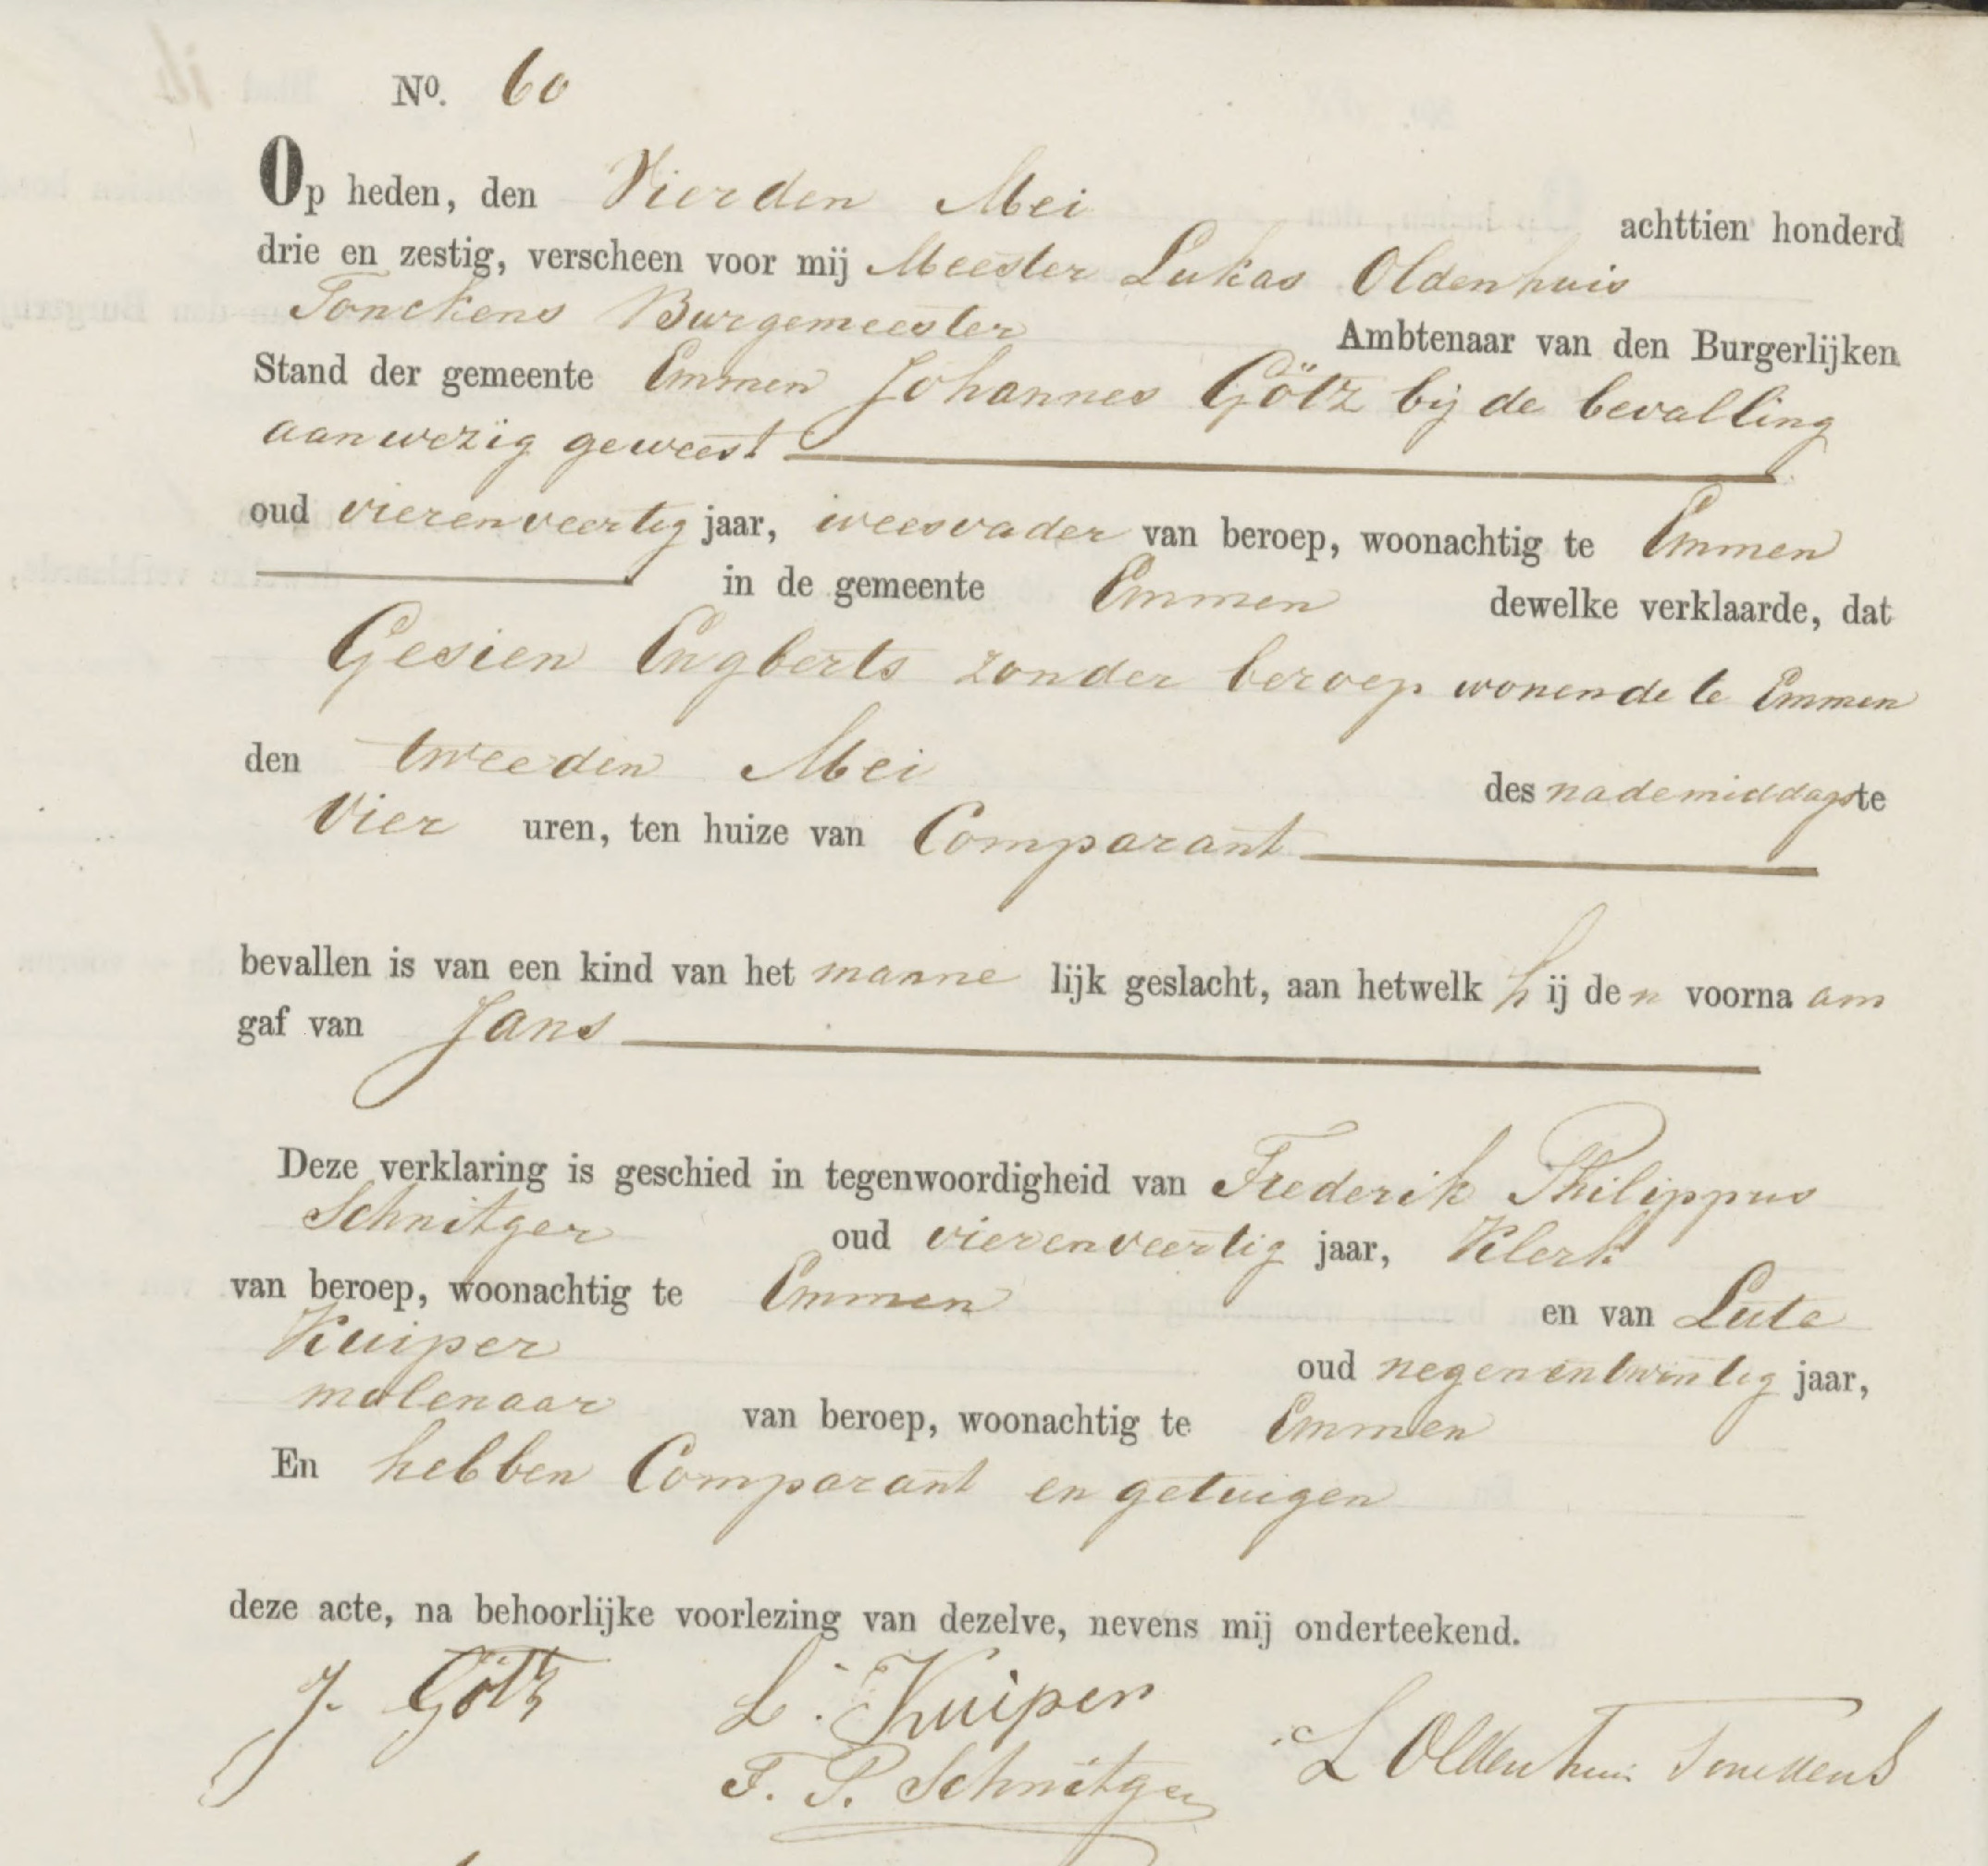 No. 60
Op heden, den Vierden Mei achttien honderd
drie en zestig, verscheen voor mij Meester Lukas Oldenhuis
Tonckens Burgemeester Ambtenaar van den Burgerlijken
Stand der gemeente Emmen Johannes Götz bij de bevalling
aanwezig geweest
oud vierenveertig jaar, weesvader van beroep, woonachtig te Emmen
in de gemeente Emmen dewelke verklaarde, dat
Gesien Engberts zonder beroep wonende te Emmen
den tweeden Mei des nademiddags te
Vier uren, ten huize van Comparant
bevallen is van een kind van het mannelijk geslacht, aan hetwelk hij den voornaam
gaf van Jans
Deze verklaring is geschied in tegenwoordigheid van Frederik Philippus
Schnitger oud vierenveertig jaar, Klerk
van beroep, woonachtig te Emmen en van Lute
Kuiper oud negenentwintig jaar,
molenaar van beroep, woonachtig te Emmen
En hebben Comparant en getuigen
deze acte, na behoorlijke voorlezing van dezelve, nevens mij onderteekend.
J. Götz L. Kuiper
F. P. Schnitger L Oldenhuis Tonckens